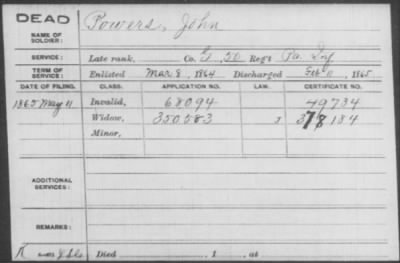 DEAD
NAME OF SOLDIER: Powers, John
SERVICE: Late rank, Co. G, 50 Reg't Pa. Inf
TERM OF SERVICE: Enlisted Mar 8, 1864 Discharged Feb 11, 1865
DATE OF FILING. CLASS. APPLICATION NO. LAW. CERTIFICATE NO.
1865 May 11 Invalid, 68094 49734
Widow, 350583 3 378184
Minor,
ADDITIONAL SERVICES:
REMARKS:
Died 1 , at